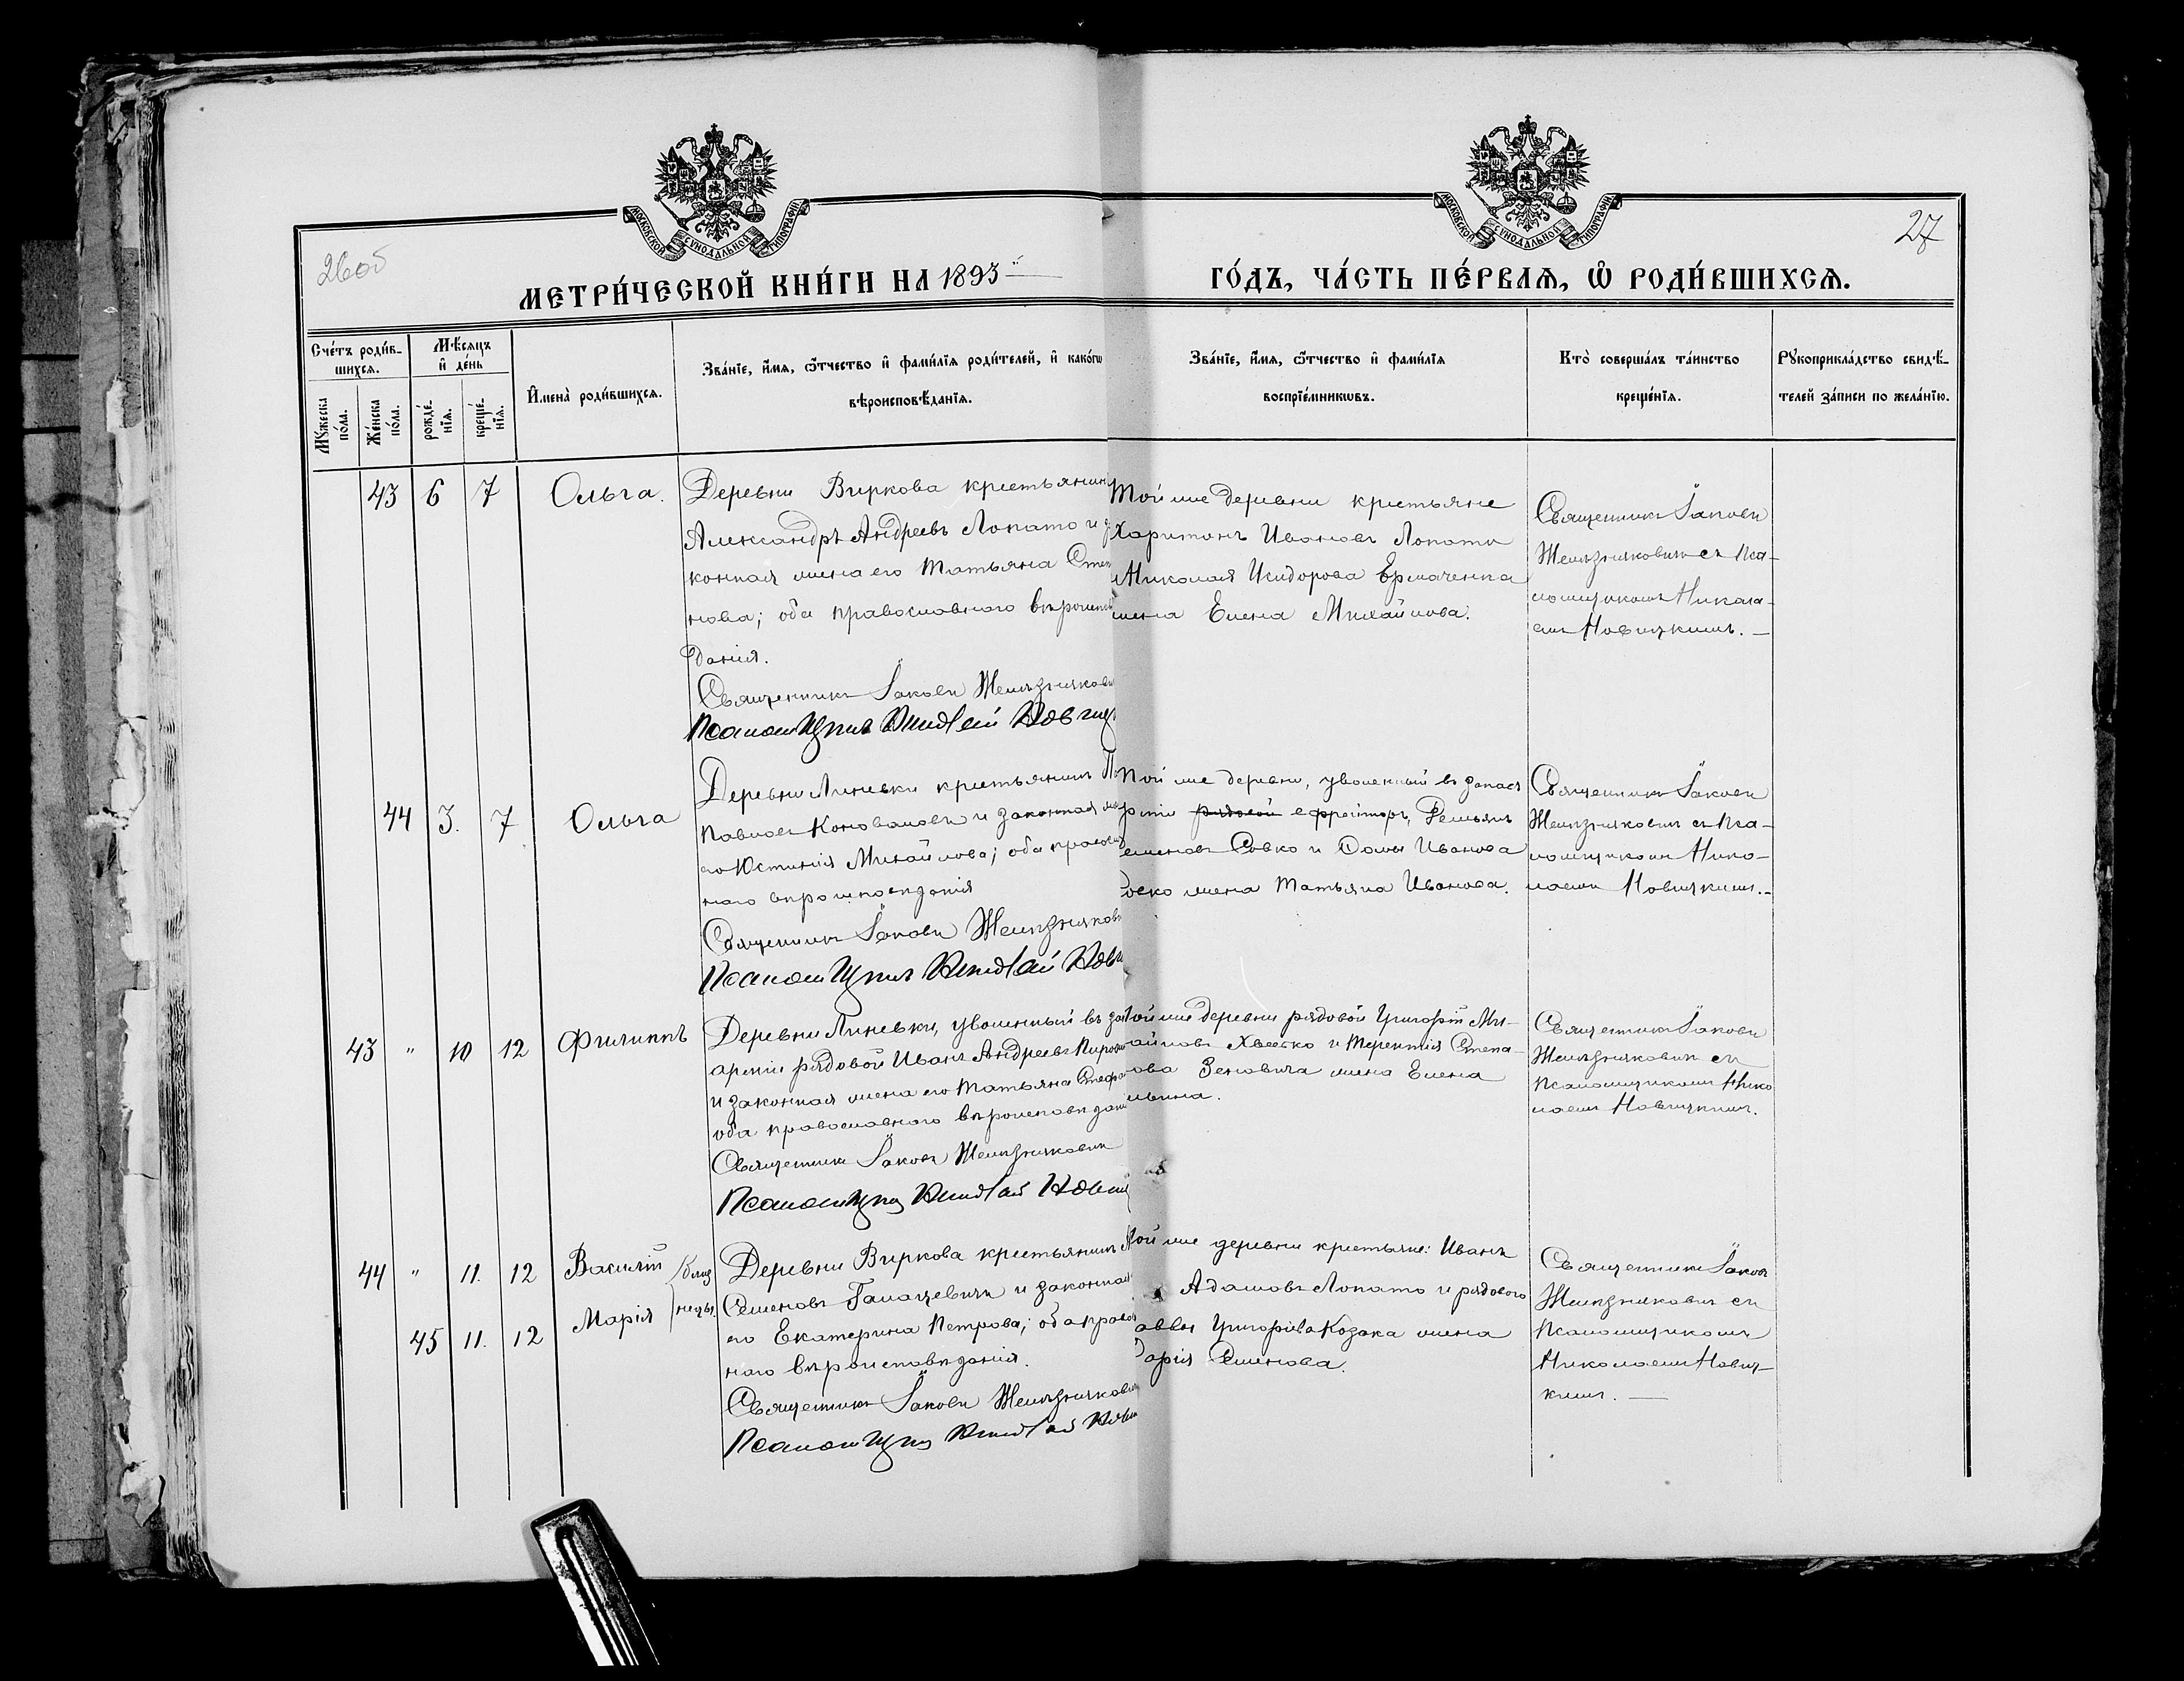 26об
27
МОСКОВСКОЙ СУНОДАЛЬНОЙ ТИПОГРАФІИ
МОСКОВСКОЙ СУНОДАЛЬНОЙ ТИПОГРАФІИ
МЕТРИ́ЧЕСКОЙ КНИ́ГИ НА 1893 й
ГО́ДЪ, ЧА́СТЬ ПЕ́РВАѦ, Ѽ РОДИ́ВШИХСѦ.
Сче́тъ роди́в-
шихсѧ.
Мꙋжеска
по́ла.
Же́нска
по́ла.
Мѣ́сѧцъ
и҆ де́нь
рожде́-
нїѧ.
креще́-
нїѧ.
И҆мена̀ роди́вшихсѧ.
Зва́нїе, и҆́мѧ, ѻ҆́тчество и҆ фами́лїѧ роди́телей, и҆ како́гѡ
вѣроисповѣ́данїѧ.
Зва́нїе, и҆́мѧ, ѻ҆́тчество и҆ фами́лїѧ
воспрїе́мникѡвъ.
Кто̀ соверша́лъ та́инство
креще́нїѧ.
Рꙋкоприкла́дство свидѣ́-
телей за́писи по жела́нїю.
43 6 7 Ольга.
Деревни Виркова крестьянин
Александръ Андреевъ Лопато и з
конная жена его Татьяна Степ
нова; оба православного вѣроиспов
данія.
Священникъ Іаковъ Желѣзнякови
Псаломщикъ Николай Новиц
Той же деревни крестьяне
Харитонъ Иванов Лопато
и Николая Исидорова Ермаченка
жена Елена Михайлова.
Священникъ Іаковъ
Желѣзняковичъ съ Пса-
ломщикомъ Никола-
емъ Новицкимъ. —
44 3. 7 Ольга
Деревни Линевки крестьянинъ
Павловъ Коновалов и законная же
его Юстинія Михайлова; оба правосла
ного вѣроисповѣданія
Священникъ Іаковъ Желѣзнякови
Псаломщикъ Николай Нови
Той же деревни, уволенный въ запасъ
рміи рядовой ефрейторъ,
еменовъ Совко и Иванова
овко жена Татьяна Иванова.
Священникъ Іаковъ
Желѣзняковичъ съ Пса-
ломщикомъ Нико-
лаемъ Новицкимъ.-
43 " 10 12 Филиппъ
Деревни Линевки, уволенный въ зап
арміи рядовой Иванъ Андреевъ
и законная жена его Татьяна Стефа
оба православного вѣроисповѣдані
Священникъ Іаковъ Желѣзняковичъ
Псаломщикъ Николай Новиц
Той же деревни рядовой Григорій Ми-
айловъ Хвесько и Терентія Степа-
ова Зеновича жена Елена
льина.
Священникъ Іаковъ
Желѣзняковичъ съ
Псаломщикомъ Нико
лаемъ Новицкимъ.
44 " 11. 12 Василій
45 11. 12 Марія
близ
нецы.
Деревни Виркова крестьянинъ
Семеновъ и законная
его Екатерина Петрова; оба правосл
ного вѣроисповѣданія.
Священникъ Іаковъ Желѣзнякович
Псаломщикъ Николай Нови
Той же деревни крестьяне: Иванъ
Адамовъ Лопато и рядового
аввы Григорьева Козака жена
Дарія Семенова.
Священникъ Іаковъ
Желѣзняковичъ съ
Псаломщикомъ
Николаемъ Новиц-
кимъ. —